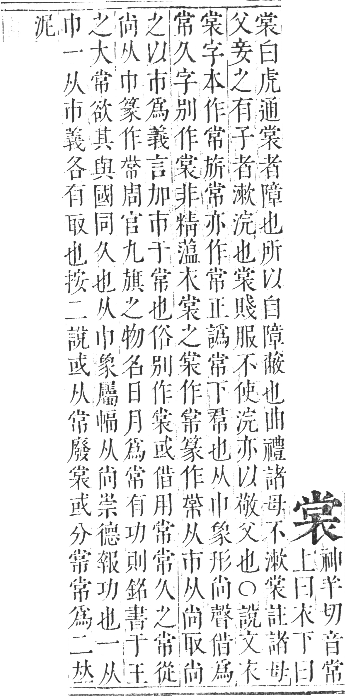 裳 神羊切音常上曰衣下曰
裳白虎通裳者障也所以自障蔽也曲禮諸母不漱裳註諸母
父妾之有子者漱浣也裳賤服不使浣亦以敬父也○說文衣
裳字本作常旂常亦作常正譌常下帬也从巾象形尚聲借爲
常久字別作裳非精薀衣裳之裳作常篆作㡓从市从尚取尚
之以市爲義言加市于常也俗別作裳或借用常常久之常從
尚从巾篆作常周官九旗之物名日月爲常有功則銘書于王
之大常欲其與國同久也从巾象屬幅从尚崇德報功也一从
巾一从市義各有取也按二說或从常廢裳或分常常爲二𠀤
泥